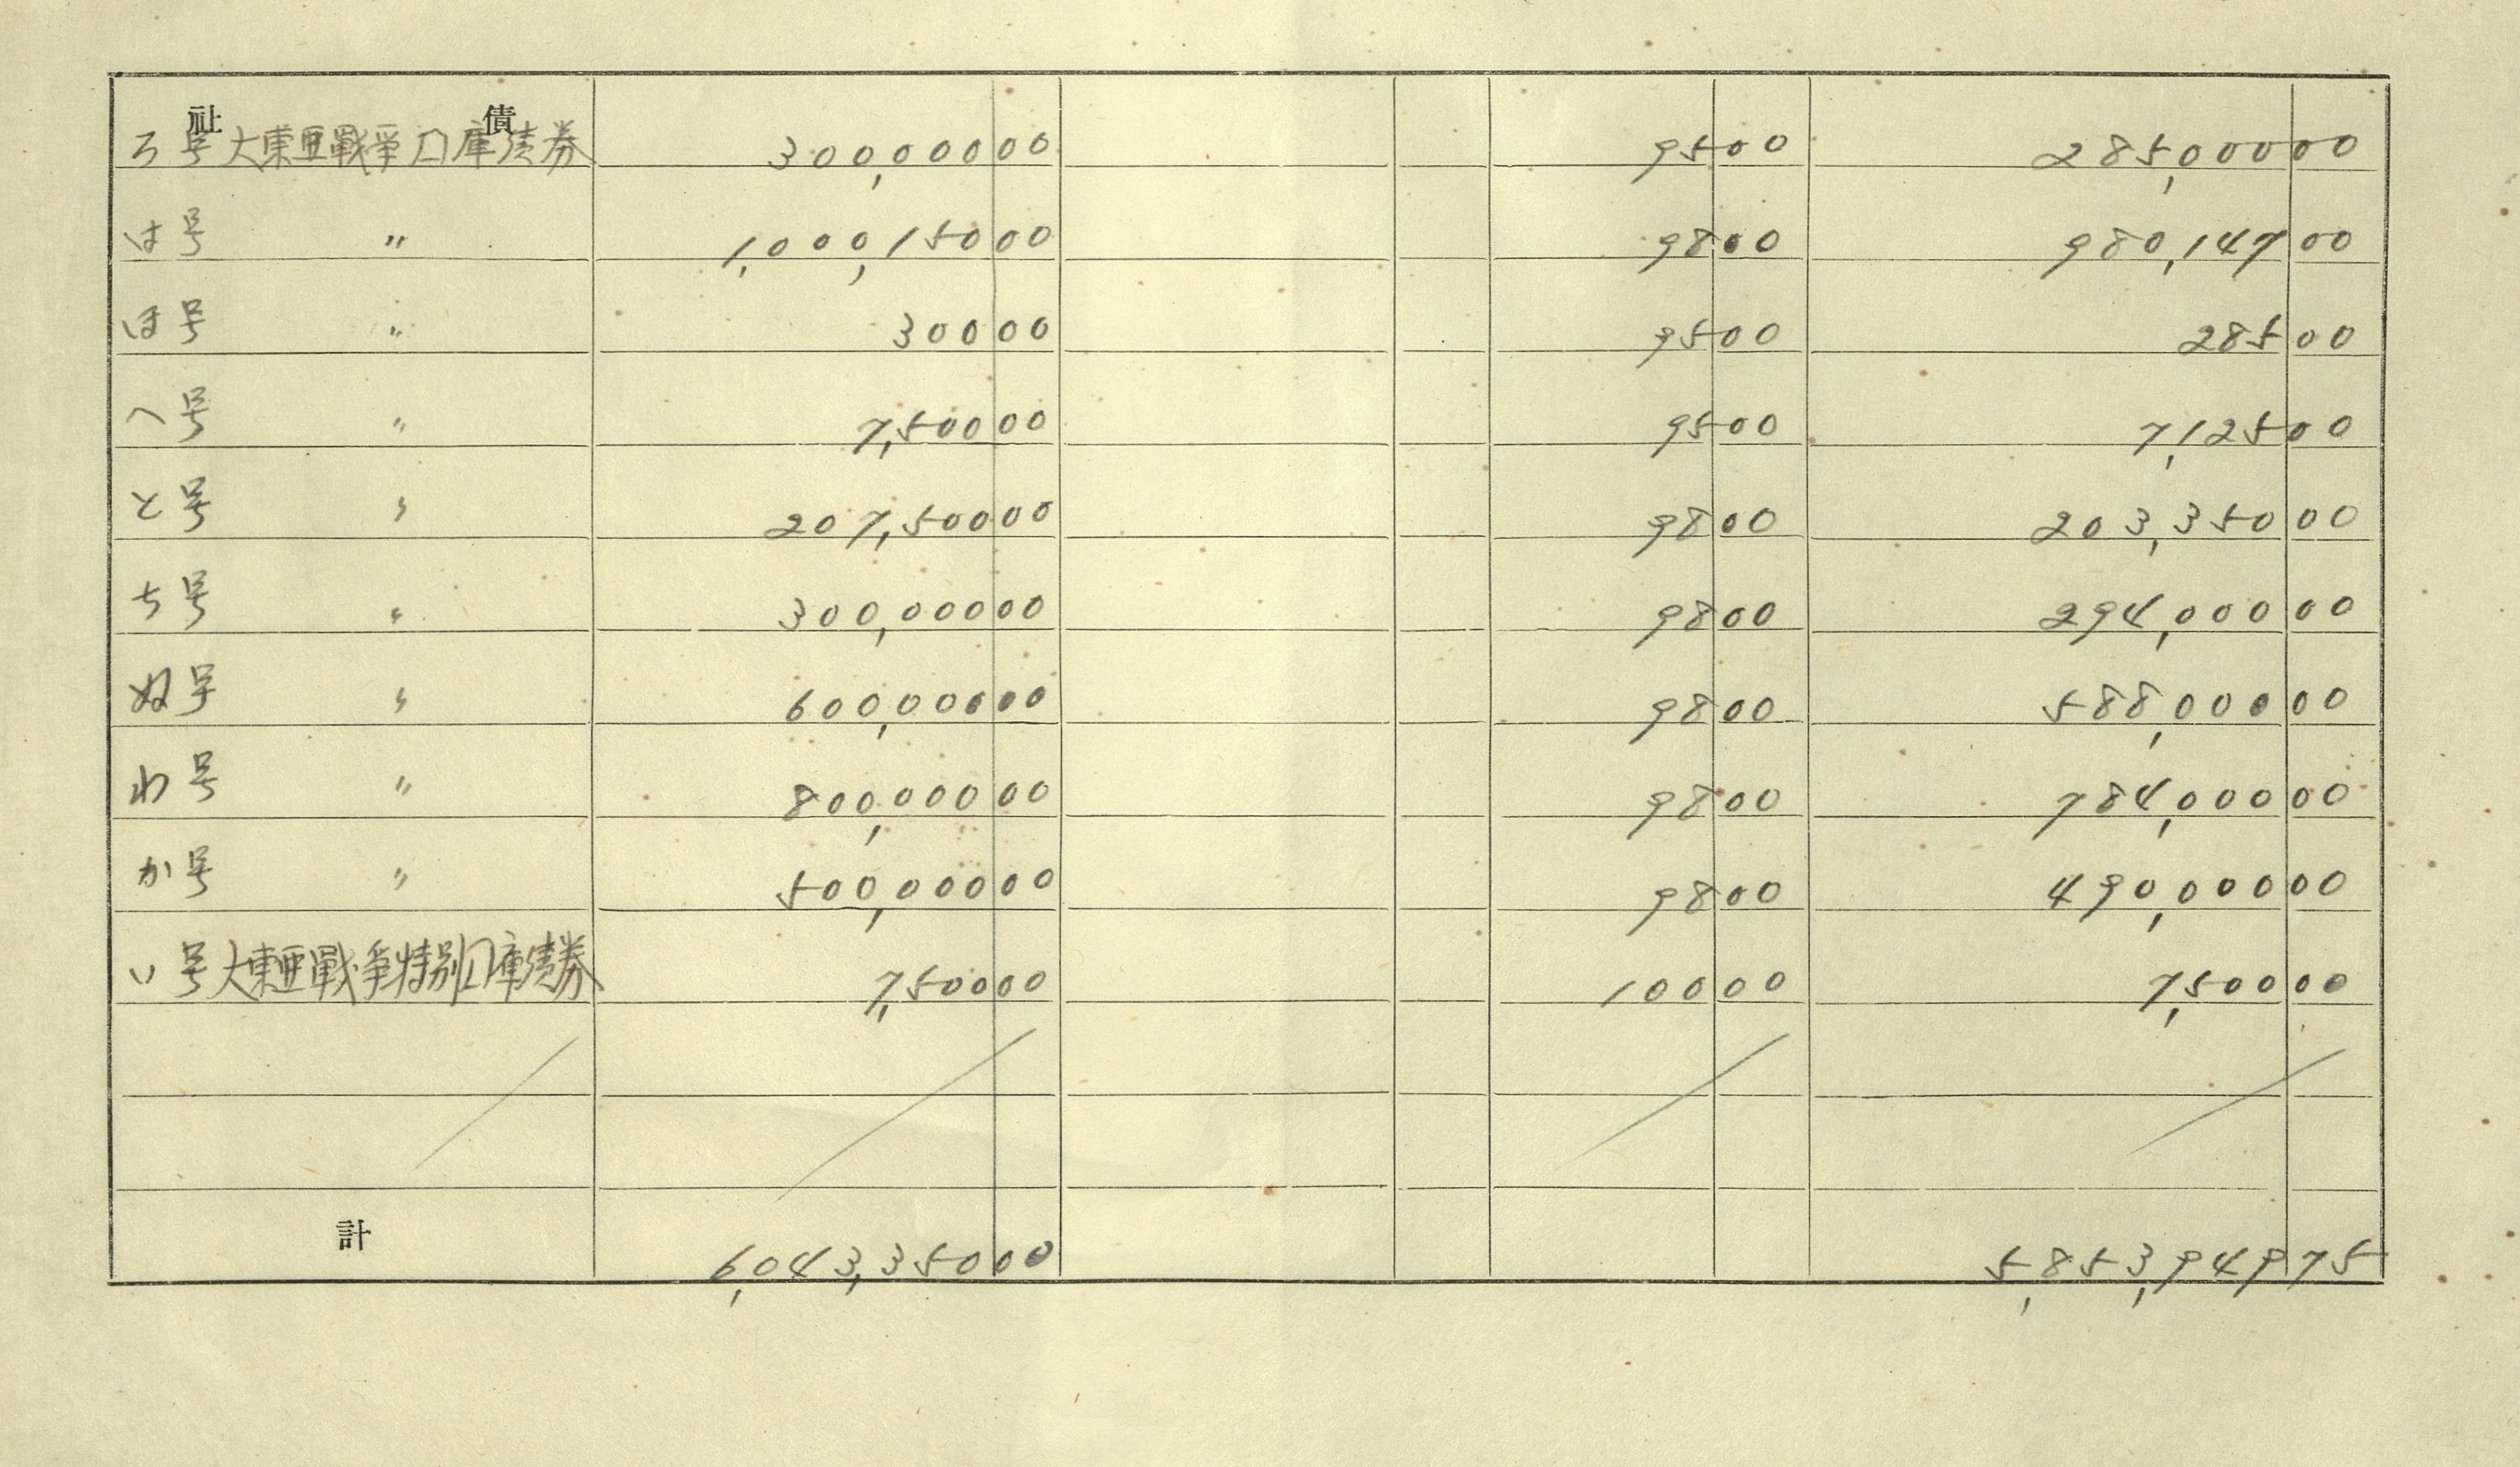 社債
ろ号 大東亜戰爭囗庫債券 300,000 00 95 00 285,000 00
は号 〃 1,000,150 00 98 00 980,147 00
ほ号 〃 300 00 95 00 285 00
へ号 〃 7,500 00 95 00 7,125 00
と号 〃 207,500 00 98 00 203,350 00
ち号 〃 300,000 00 98 00 294,000 00
ぬ号 〃 600,000 00 98 00 588,000 00
わ号 〃 800,000 00 98 00 784,000 00
か号 〃 500,000 00 98 00 490,000 00
い号 大東亜戰爭特別囗庫債券 7,500 00 100 00 7,500 00
計 6,043,350 00 5,853,949 75